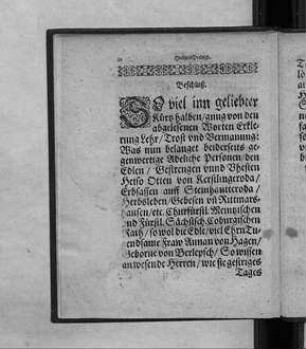 Beschluß.
SO viel inn geliebter
Kürtz halben/ gnug von den
abgelesenen Worten Erkle-
rung/ Lehr/ Trost vnd Vermanung:
Was nun belanget beiderseits ge-
genwertige Adeliche Personen den
Edlen/ Gestrengen vnnd Vhesten
Otten von Kerstlingeroda/
Erbsassen auff
Herbsleben/ Gebesen vñ Rittmars-
hausen/ etc. Churfürstl. Meintzischen
vnd Fürstl. Sächsisch. Coburgischen
Rath/ so wol die Edle/ viel Ehrn Tu-
gendsame Fraw Annan von Hagen/
Geborne von Berlepsch/ So wissen
anwesende Herren/ wie sie gestriges
Tages